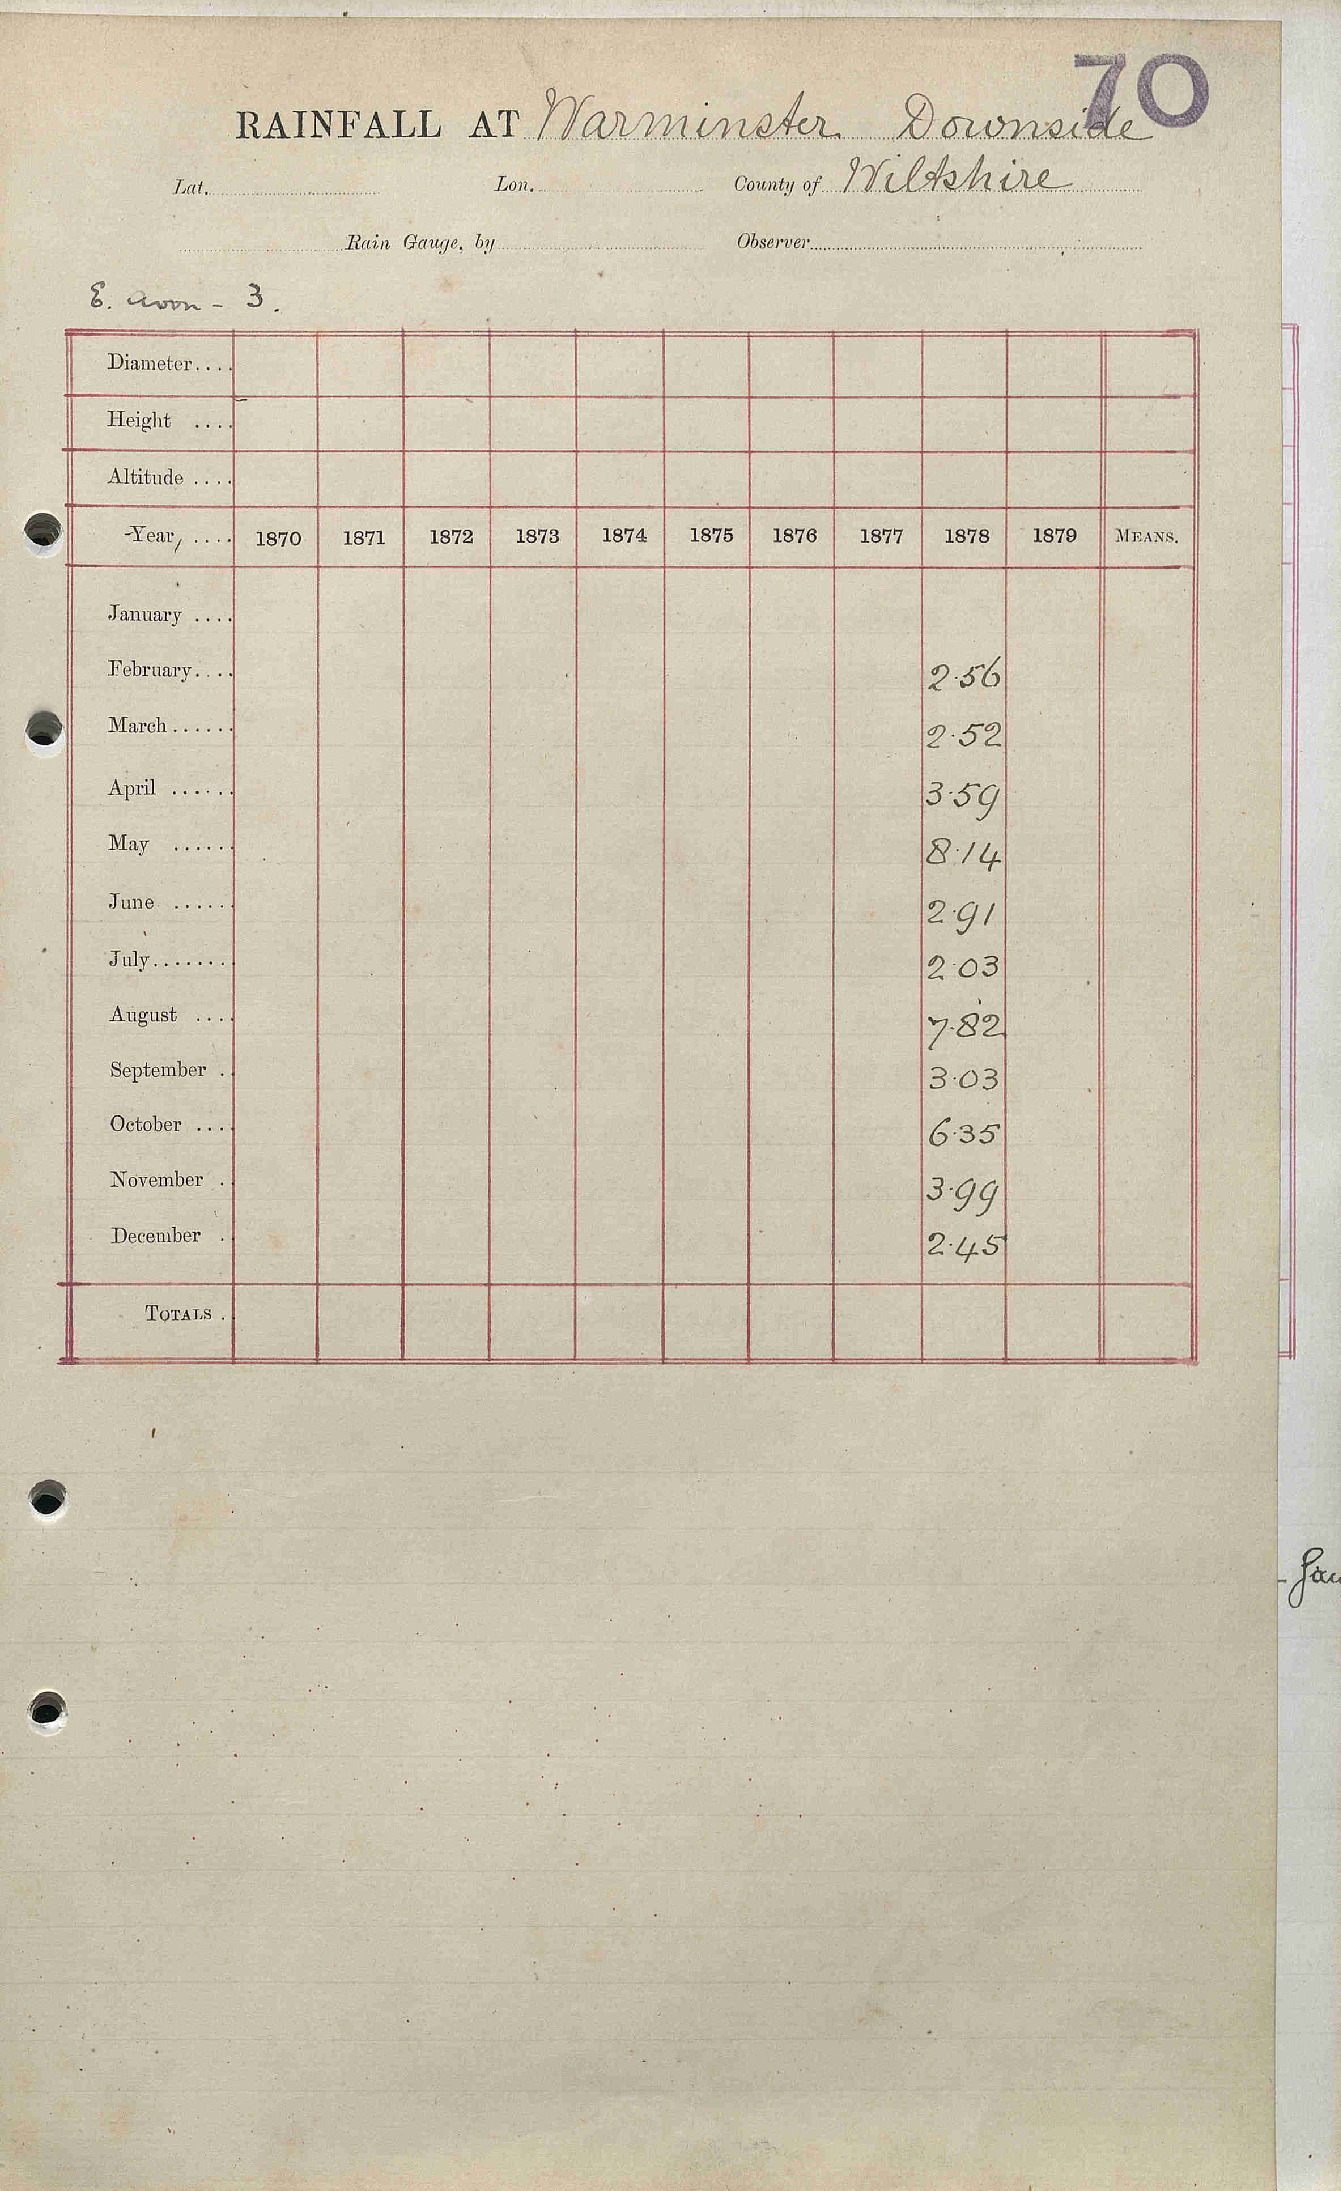 70
RAINFALL AT Warminster Downside
Lat. Lon. County of Wiltshire
Rain Gauge, by Observer
E. Avon - 3.
Diameter....
Height ....
Altitude ....
Year, .... 1870 1871 1872 1873 1874 1875 1876 1877 1878 1879 MEANS.
January ....
February.... 2.56
March...... 2.52
April ...... 3.59
May ...... 8.14
June ...... 2.91
July....... 2.03
August .... 7.82
September . 3.03
October .... 6.35
November . 3.99
December . 2.45
TOTALS .